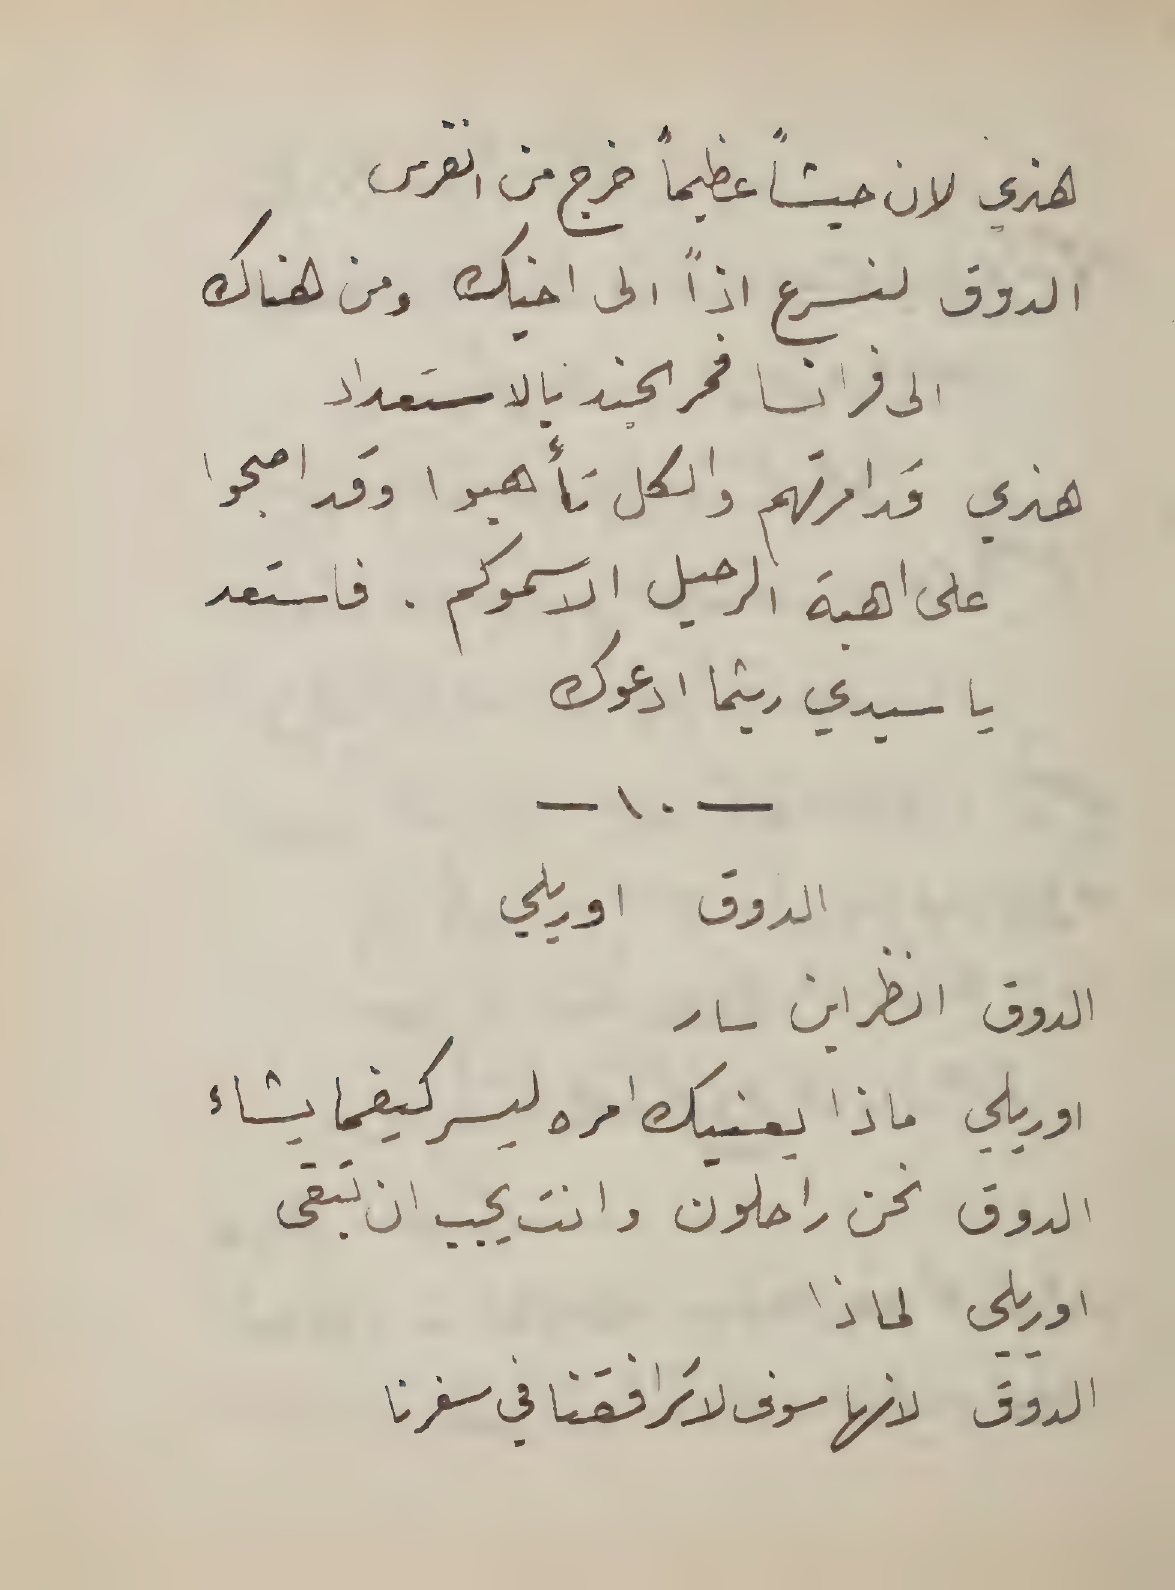 هنري لان جيشاً عظيماً خرج من انفرس
الدوق لنسرع اذاً الى اخيك ومن هناك
الى فرانسا فمر الجند بالاستعداد
هنري قد امرتهم والكل تأهبوا وقد اصبحوا
على اهبة الرحيل الا سموكم . فاستعد
يا سيدي ريثما ادعوك
— ١٠ —
الدوق اوريلي
الدوق انظر اين سار
اوريلي ماذا يعنيك امره ليسر كيفما يشاء
الدوق نحن راحلون وانت يجب ان تبقى
اوريلي لماذا
الدوق لانها سوف لا ترافقنا في سفرنا